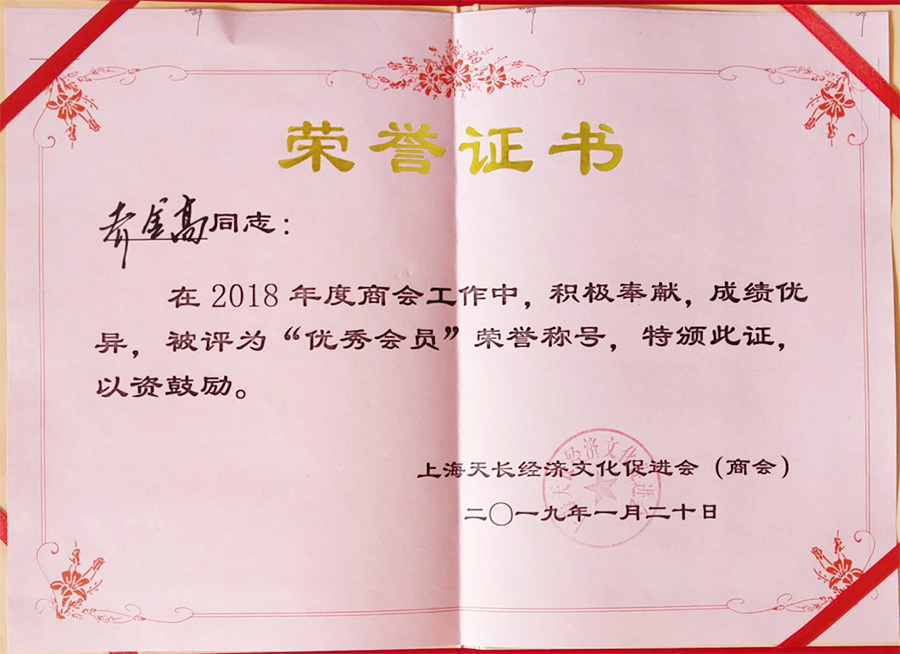 荣誉证书
金高同志：
在 2018 年度商会工作中，积极奉献，成绩优
异，被评为“优秀会员”荣誉称号，特颁此证，
以资鼓励。
上海天长经济文化促进会（商会）
二〇一九年一月二十日